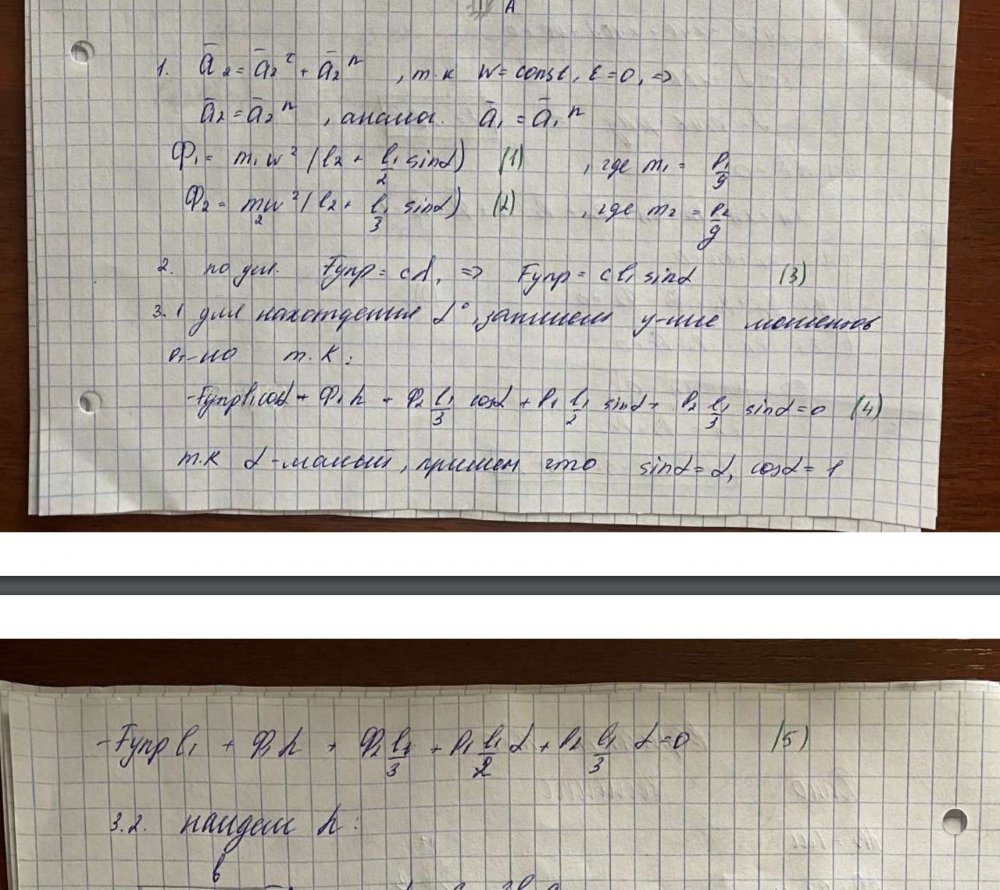 A
1. ā₂ = ā₂^τ + ā₂ⁿ , т.к w = const, ε = 0, =>
ā₂ = ā₂ⁿ , аналог. ā₁ = ā₁ⁿ
Φ₁ = m₁w² (l₂ + l₁/2 sinα) (1) , где m₁ = P₁/g
Φ₂ = m₂w² (l₂ + l₁/3 sinα) (2) , где m₂ = P₂/g
2. по усл. Fупр = cλ, => Fупр = cl₁ sinα (3)
3.1 для нахождения α°, запишем у-ние моментов
от-но т. К:
-Fупрl₁cosα + Φ₁h + Φ₂ l₁/3 cosα + P₁ l₁/2 sinα + P₂ l₁/3 sinα = 0 (4)
т.к α - малый, примем что sinα = α, cosα = 1
-Fупр l₁ + Φ₁h + Φ₂ l₁/3 + P₁ l₁/2 α + P₂ l₁/3 α = 0 (5)
3.2. найдем h:
b